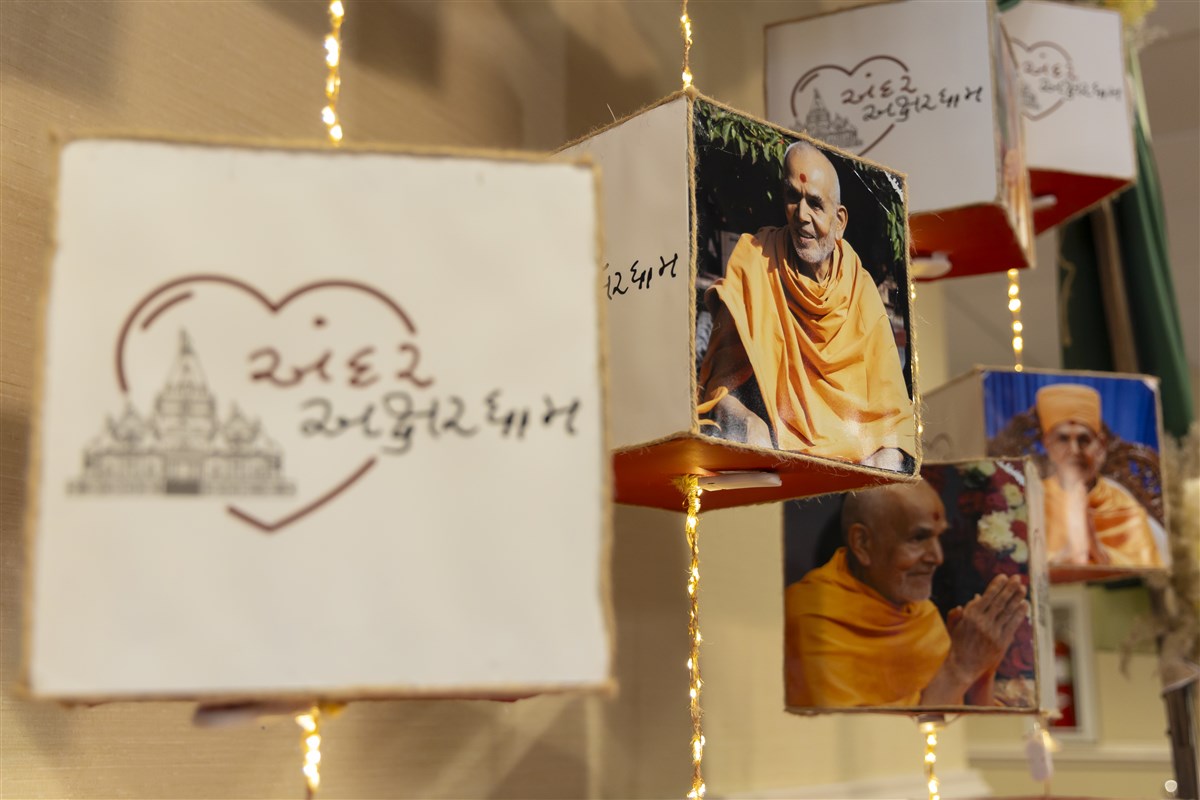 અંદર
અક્ષરધામ
રધામ
અંદર
અક્ષરધામ
અંદર
અક્ષરધામ